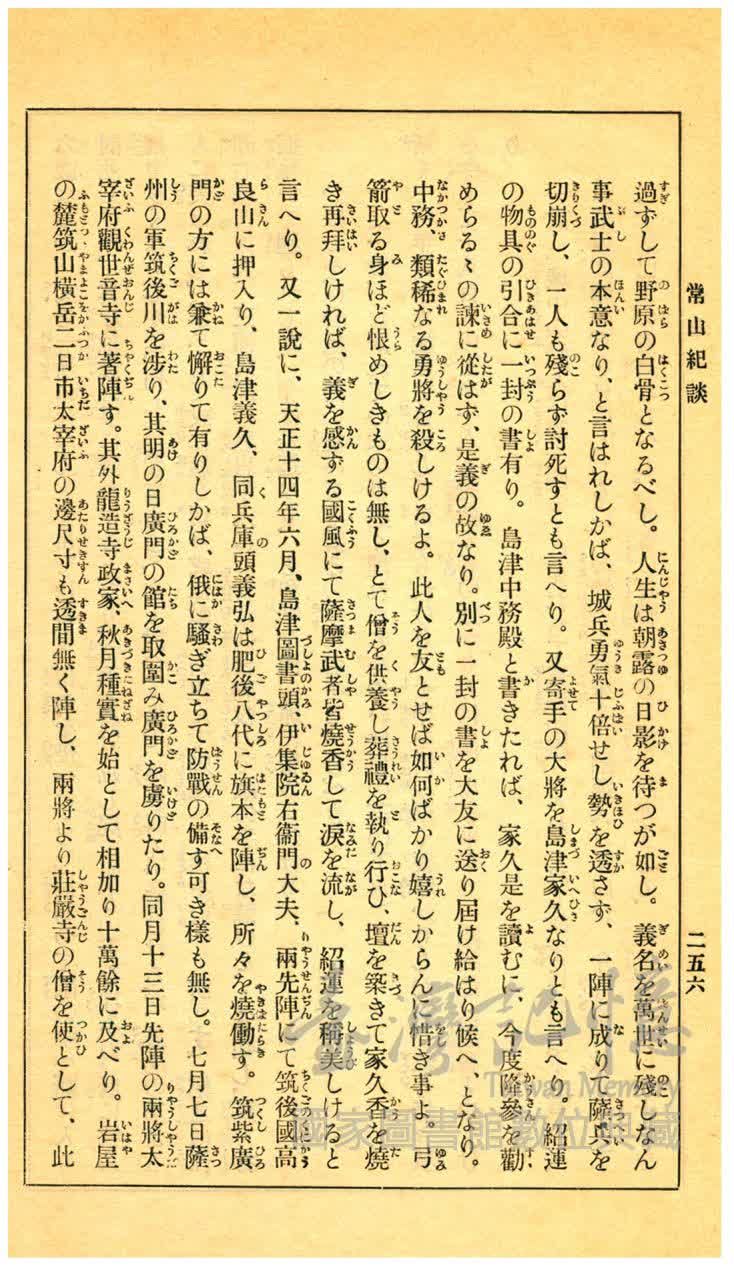 常山紀談
二五六
過ずして野原の白骨となるべし。人生は朝露の日影を待つが如し。義名を萬世に殘しなん
事武士の本意なり、と言はれしかば、城兵勇氣十倍せし勢を透さず、一陣に成りて薩兵を
切崩し、一人も殘らず討死すとも言へり。又寄手の大將を島津家久なりとも言へり。紹運
の物具の引合に一封の書有り。島津中務殿と書きたれば、家久是を讀むに、今度降參を勸
めらるゝの諫に從はず、是義の故なり。別に一封の書を大友に送り屆け給はり候へ、となり。
中務、類稀なる勇將を殺しけるよ。此人を友とせば如何ばかり嬉しからんに惜き事よ。弓
箭取る身ほど恨めしきものは無し、とて僧を供養し葬禮を執り行ひ、壇を築きて家久香を燒
き再拜しければ、義を感ずる國風にて薩摩武者皆燒香して淚を流し、紹運を稱美しけると
言へり。又一說に、天正十四年六月、島津圖書頭、伊集院右衞門大夫、兩先陣にて筑後國高
良山に押入り、島津義久、同兵庫頭義弘は肥後八代に旗本を陣し、所々を燒働す。筑紫廣
門の方には兼て懈りて有りしかば、俄に騷ぎ立ちて防戰の備す可き樣も無し。七月七日薩
州の軍筑後川を涉り、其明の日廣門の館を取圍み廣門を虜りたり。同月十三日先陣の兩將太
宰府觀世音寺に著陣す。其外龍造寺政家、秋月種實を始として相加り十萬餘に及べり。岩屋
の麓筑山橫岳二日市太宰府の邊尺寸も透間無く陣し、兩將より莊嚴寺の僧を使として、此
臺灣記憶
Taiwan Memory
國家圖書館數位典藏